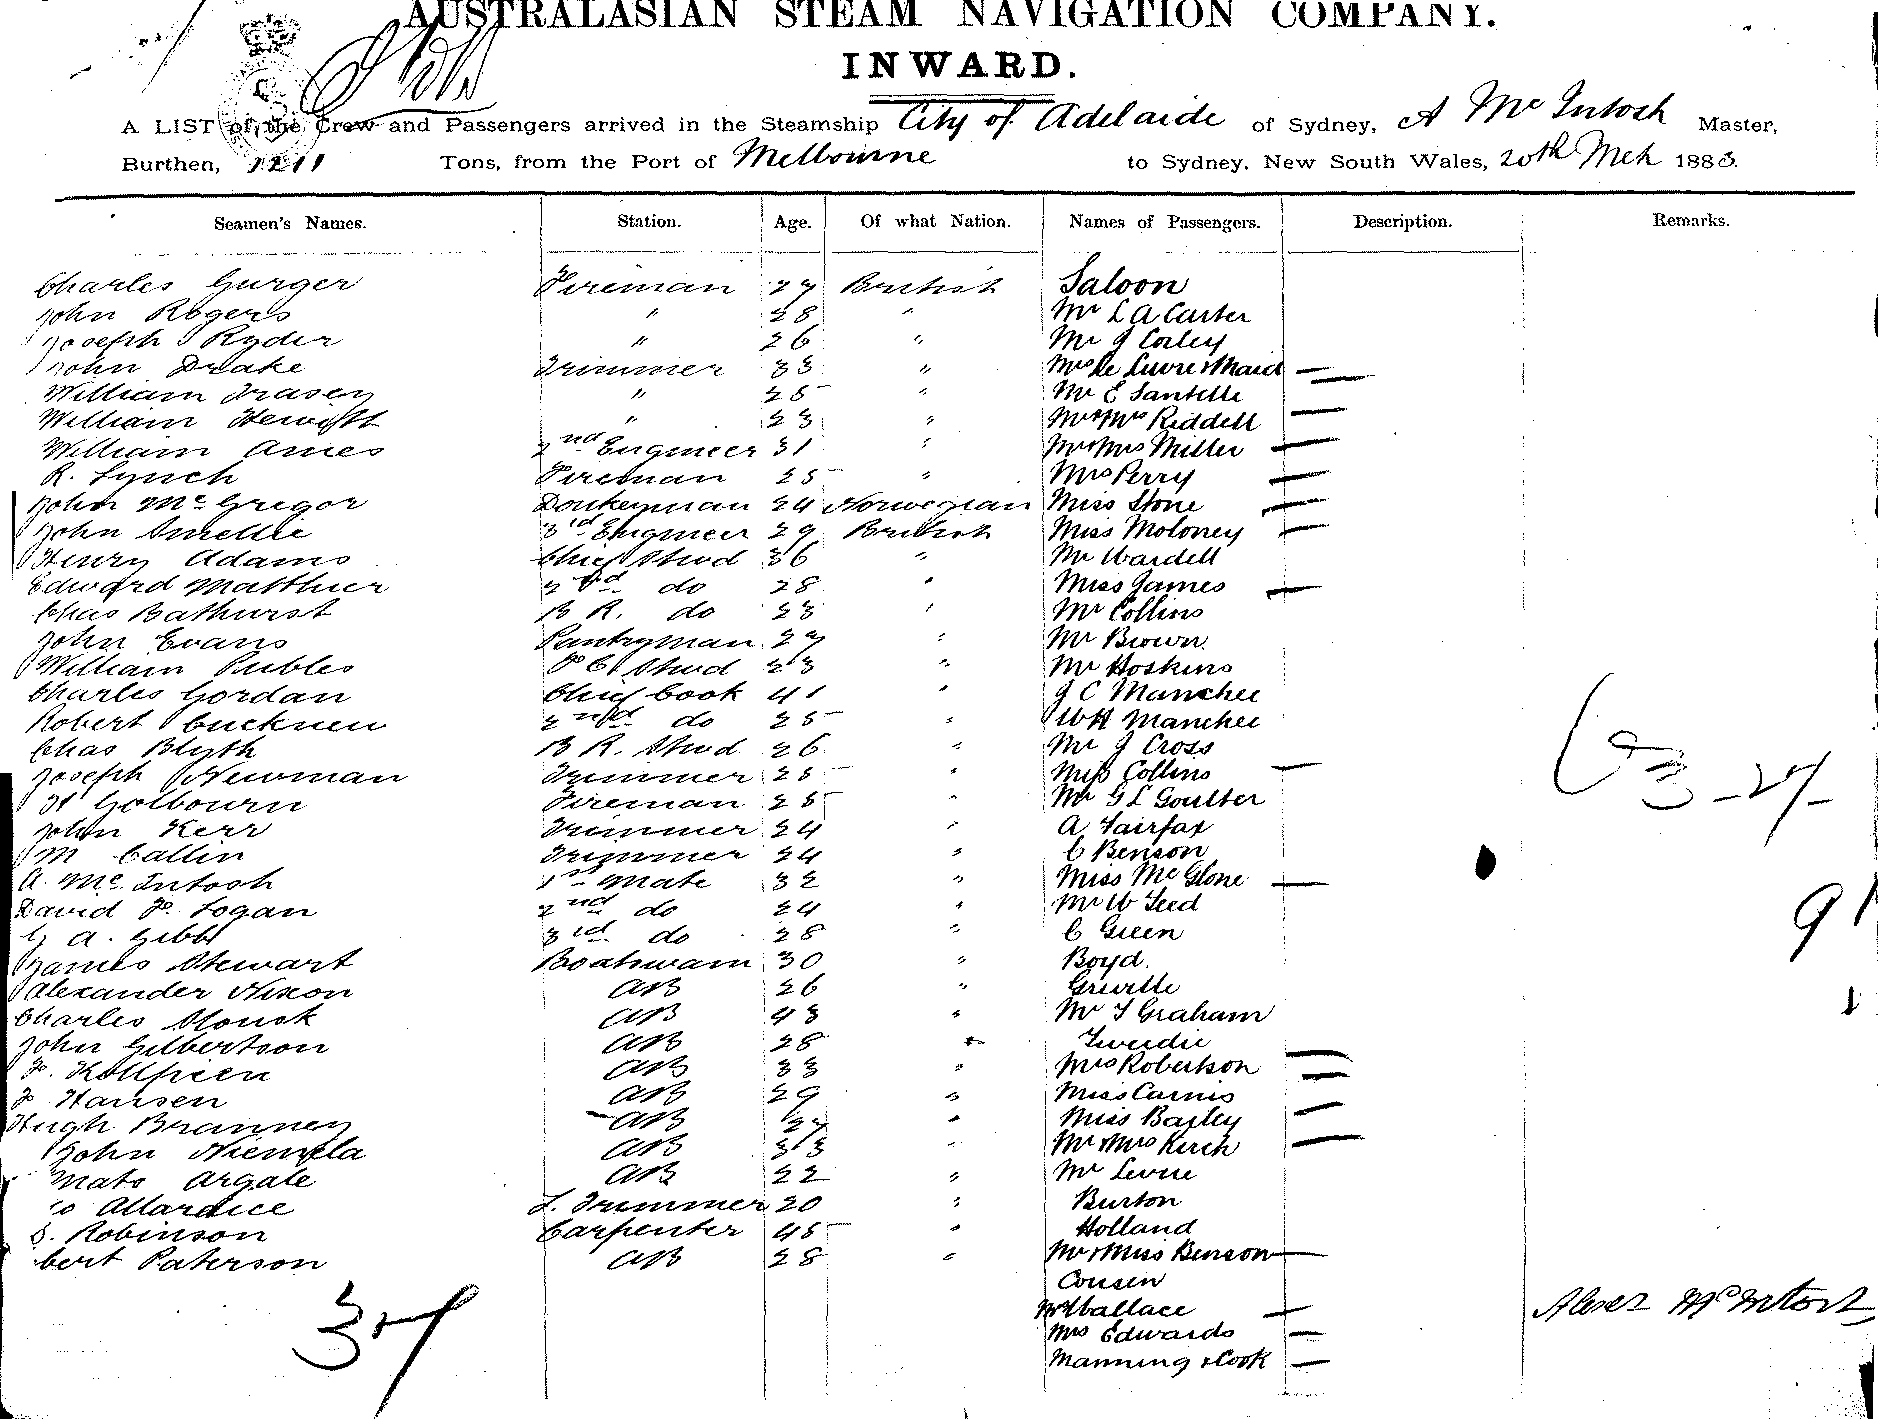 AUSTRALASIAN STEAM NAVIGATION COMPANY.
INWARD.
A LIST of the Crew and Passengers arrived in the Steamship City of Adelaide of Sydney, A McIntosh Master,
Burthen, 1211 Tons, from the Port of Melbourne to Sydney, New South Wales, 20th Mch 1883.
Seamen's Names. Station. Age. Of what Nation. Names of Passengers. Description. Remarks.
Charles Gurger Fireman 27 British Saloon
John Rogers " 28 " Mr L A Carter
Joseph Ryder " 26 " Mr J Corley
John Drake Trimmer 33 " Mrs De Luvre & Maid —
William Frasey " 25 " Mr E Santelle —
William Hewitt " 23 " Mr & Mrs Riddell —
William Ames 2nd Engineer 31 " Mr & Mrs Miller —
R. Lynch Fireman 25 " Mrs Perry —
John McGregor Donkeyman 24 Norwegian Miss Stone —
John Smellie 3rd Engineer 29 British Miss Moloney —
Henry Adams Chief Stwd 36 " Mr Wardell
Edward Matthier 2nd do 28 " Miss James —
Chas Bathurst B R. do 23 " Mr Collins
John Evans Pantryman 27 " Mr Brown
William Peebles F C Stwd 23 " Mr Hoskins
Charles Gordan Chief Cook 41 " J C Manchee
Robert Cucknen 2nd do 25 " W H Manchee
Chas Blyth B R. Stwd 26 " Mr J Cross
Joseph Newman Trimmer 25 " Miss Collins —
H Golbourn Fireman 25 " Mr G L Goulter
John Kerr Trimmer 24 " A Fairfax
M Callin Trimmer 24 " C Benson
A. McIntosh 1st Mate 32 " Miss McGlone —
David F. Logan 2nd do 24 " Mr W Teed
G A. Gibb 3rd do 28 " C Green
James Stewart Boatswain 30 " Boyd.
Alexander Nixon AB 26 " Greville
Charles AB 43 " Mr T Graham
John Gilbertson AB 28 " Tweedie
F. AB 33 " Mrs Robertson —
F Hansen AB 29 " Miss Cairns —
Hugh Branney AB 27 " Miss Bailey —
John Niemela AB 33 " Mr & Mrs Kerch —
Mato Argale AB 22 " Mr Levie
Allardice T. Trimmer 20 " Burton
S. Robinson Carpenter 45 " Holland
bert Paterson AB 28 " Mr & Miss Benson —
Cousen
Mrs Wallace —
Mrs Edwards —
Manning & Cook —
37
63 - 27 -
91
Alexr McIntosh